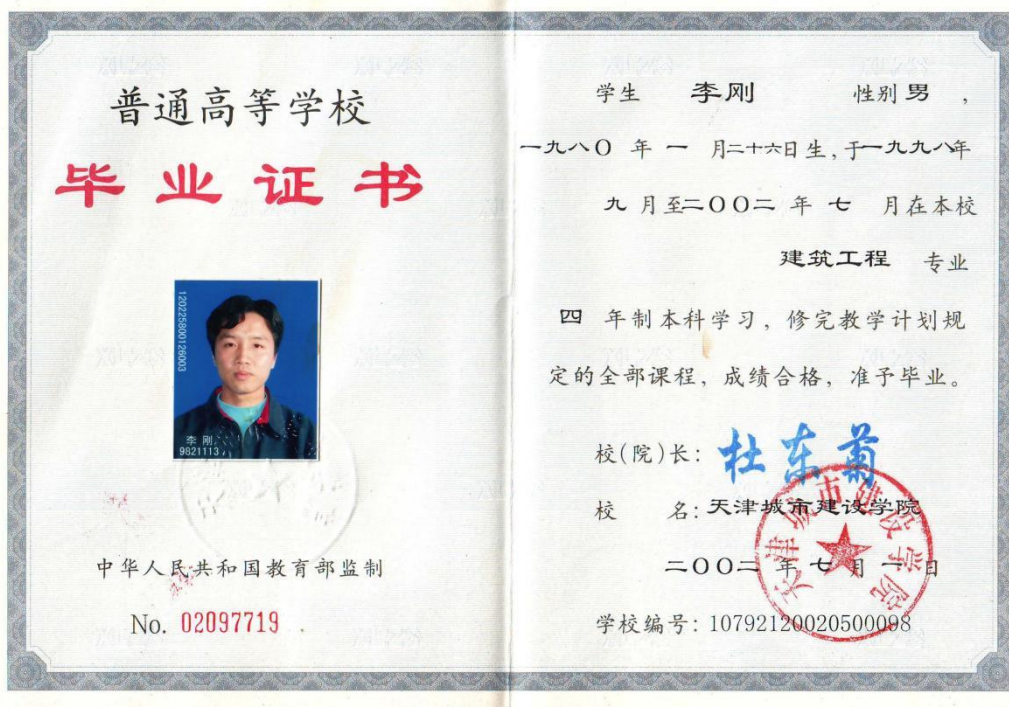 普通高等学校
毕业证书
120225800126003
李 刚
9821113
中华人民共和国教育部监制
No. 02097719
学生 李刚 性别 男 ，
一九八〇 年 一 月二十六日生，于一九九八年
九 月至二〇〇二 年 七 月在本校
建筑工程 专业
四 年制本科学习，修完教学计划规
定的全部课程，成绩合格，准予毕业。
校(院)长： 杜东菊
校 名：天津城市建设学院
二〇〇二 年 七 月 一 日
天津城市建设学院
学校编号：10792120020500098